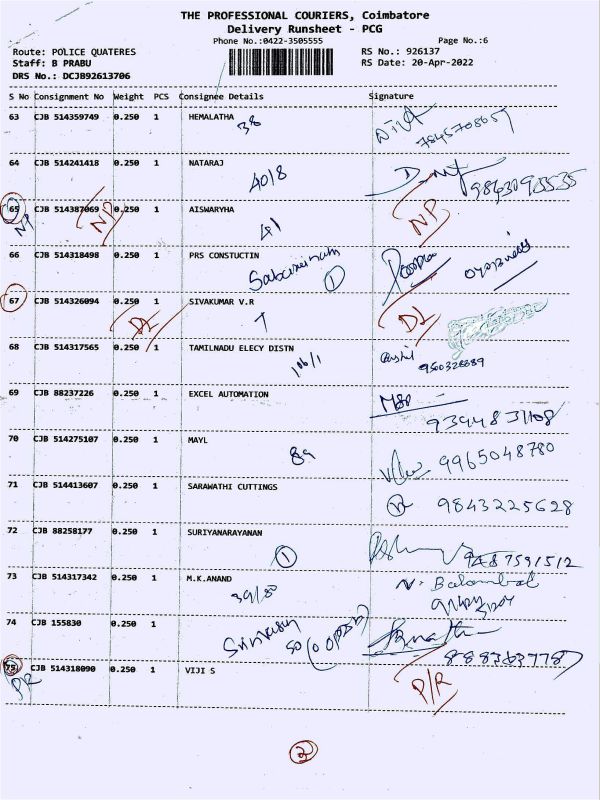 THE PROFESSIONAL COURIERS, Coimbatore
Delivery Runsheet - PCG
Phone No.:0422-3505555 Page No.:6
Route: POLICE QUATERES RS No.: 926137
Staff: B PRABU RS Date: 20-Apr-2022
DRS No.: DCJB92613706
S No Consignment No Weight PCS Consignee Details Signature
63 CJB 514359749 0.250 1 HEMALATHA
38
64 CJB 514241418 0.250 1 NATARAJ
4018
65 CJB 514387069 0.250 1 AISWARYHA
NP NP 41 NP
66 CJB 514318498 0.250 1 PRS CONSTUCTIN
1
67 CJB 514326094 0.250 1 SIVAKUMAR V.R
DL DL
68 CJB 514317565 0.250 1 TAMILNADU ELECY DISTN
106/1
69 CJB 88237226 0.250 1 EXCEL AUTOMATION
70 CJB 514275107 0.250 1 MAYL
89 9965048780
71 CJB 514413607 0.250 1 SARAWATHI CUTTINGS
9843225628
72 CJB 88258177 0.250 1 SURIYANARAYANAN
1 9487591512
73 CJB 514317342 0.250 1 M.K.ANAND
74 CJB 155830 0.250 1
75 CJB 514318090 0.250 1 VIJI S
P/R P/R
2